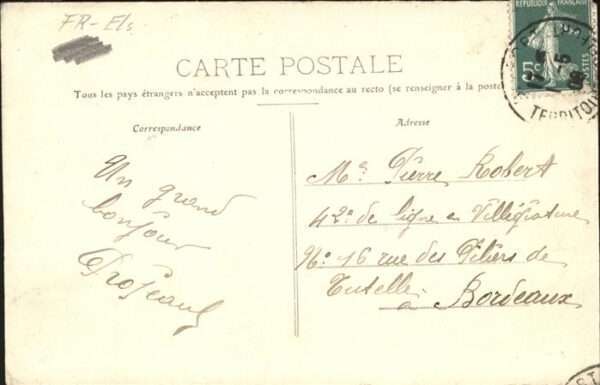 FR-Els
RÉPUBLIQUE FRANÇAISE
5c
POSTES
TERRITOI
CARTE POSTALE
Tous les pays étrangers n'acceptent pas la correspondance au recto (se renseigner à la poste
Correspondance
Adresse
Un grand
bonjour
Mr Pierre Robert
42e de ligne en Villégiature
No 16 rue des Piliers de
Tutelle
à Bordeaux